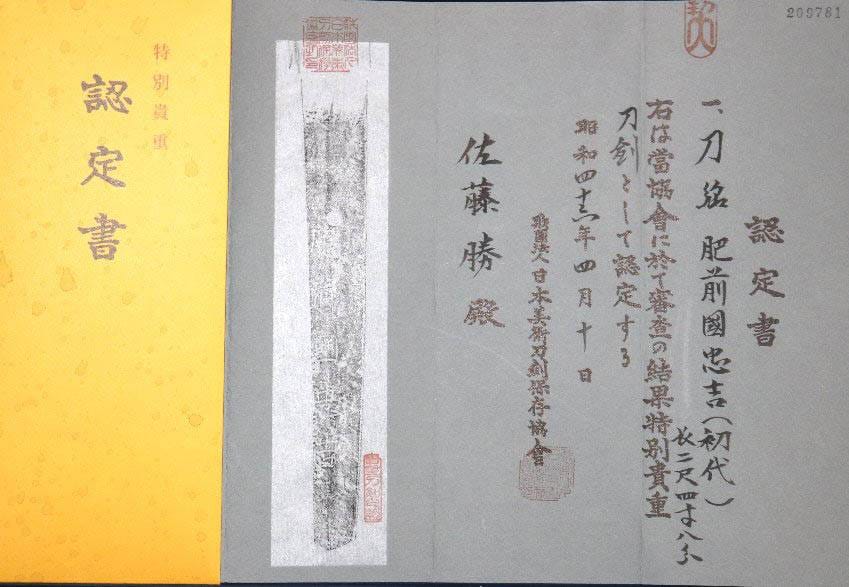 特別貴重
認定書
209781
認定書
一、刀 銘 肥前國忠吉(初代)
長二尺四寸八分
右は當協會に於て審査の結果特別貴重
刀劍として認定する
昭和四十六年四月十日
財團法人日本美術刀劍保存協會
佐藤勝殿